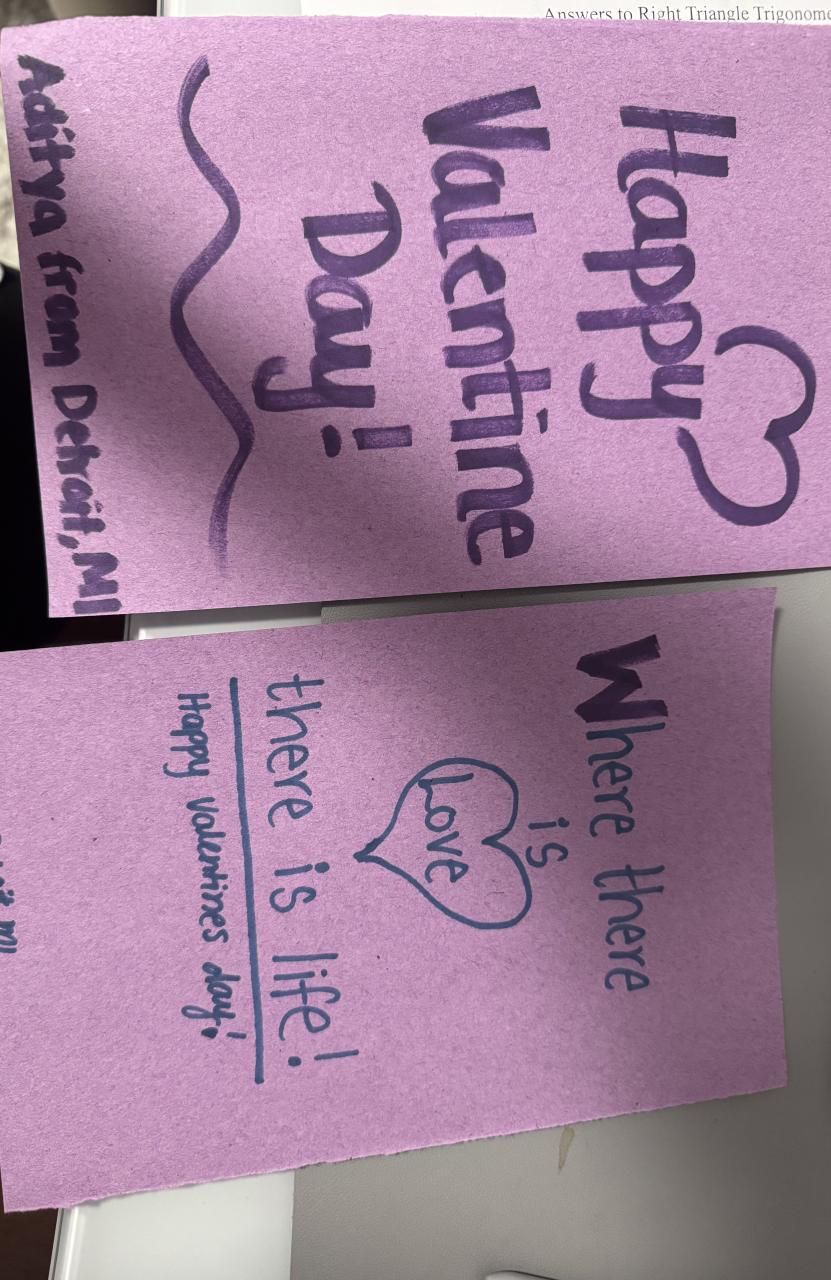 Answers to Right Triangle Trigonome
Happy
Valentine
Day!
Aditya from Detroit, MI
Where there
is
Love
there is life!
Happy Valentines day!